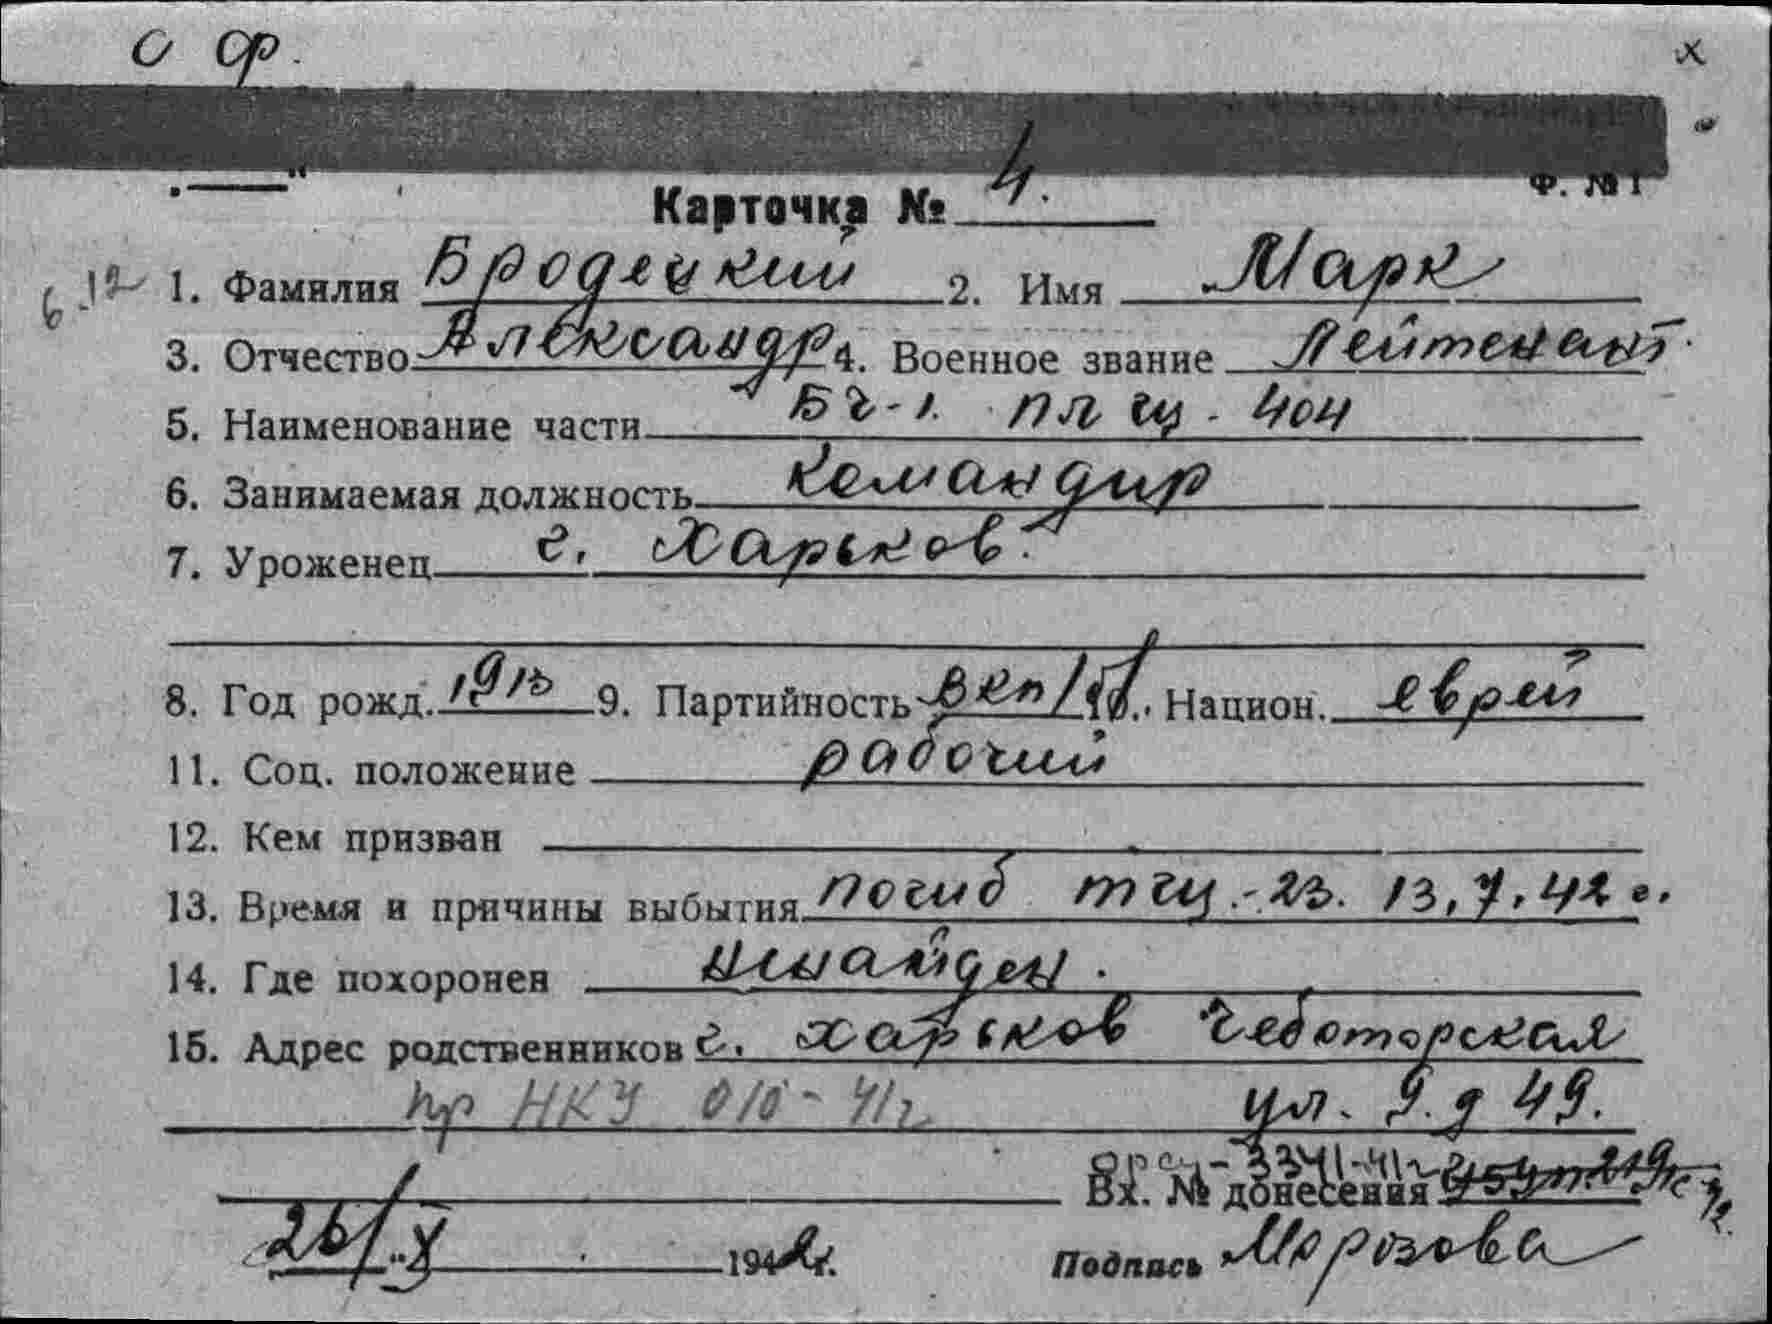 О ф.
х
Ф. № 1
Карточка № 4.
6.12 1. Фамилия Бродецкий 2. Имя Марк
3. Отчество Александр 4. Военное звание Лейтенант.
5. Наименование части БЧ-1. пл щ - 404
6. Занимаемая должность Командир
7. Уроженец г. Харьков.
8. Год рожд. 1913 9. Партийность ВКП/б/. Национ. еврей
11. Соц. положение рабочий
12. Кем призван
13. Время и причины выбытия погиб тщ.-23. 13.7.42 г.
14. Где похоронен
15. Адрес родственников г. Харьков Чеботорская
пр НКУ 010-41г ул. 9. д 49.
3341-41г
Вх. № донесения
26/X 1942г. Подпись Морозова